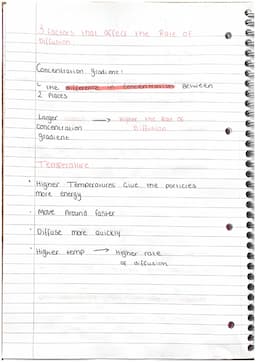 3 factors that affect the Rate of
Diffusion
Concentration gradient:
the difference in concentration Between
2 Places
Larger → higher the Rate of
concentration Diffusion
gradient
Temperature
Higher Temperatures Give the particles
more energy
Move Around faster
Diffuse more quickly
Higher temp → Higher rate
of diffusion